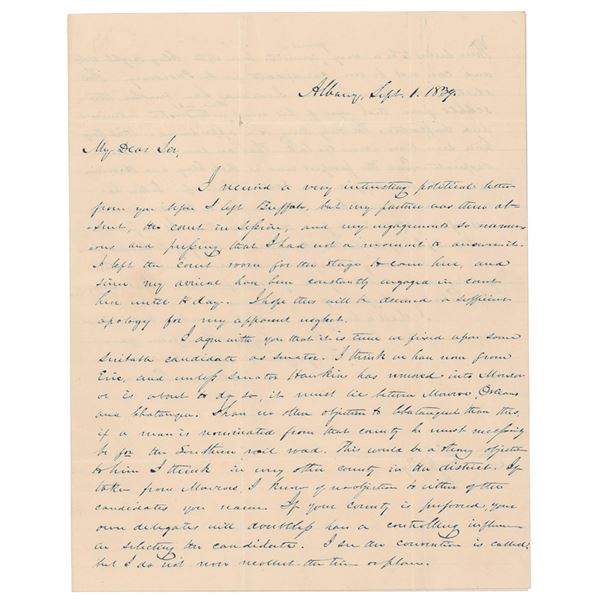 Albany, Sept. 1. 1839.
My Dear Sir,
I received a very interesting political letter
from you before I left Buffalo, but my partner was then ab-
sent, the court in session, and my engagements so numer-
ous and pressing that I had not a moment to answer it.
I left the court room for the stage to come here, and
since my arrival have been constantly engaged in court
here until to day. I hope this will be deemed a sufficient
apology for my apparent neglect.
I agree with you that it is time we fixed upon some
suitable candidate as senator. I think we have now from
Erie, and unless senator Hawkins has removed into Monroe
or is about to do so, it must lie between Monroe, Orleans
and Chatauque. I have no other objection to Chatauque than this,
if a man is nominated from that county he must necessarily
be for the Southern rail road. This would be a strong objection
to him I think in every other county in the district. If
taken from Monroe, I know of no objection to either of the
candidates you name. If your county is preferred, your
own delegates will doubtless have a controlling influence
in selecting the candidate. I see the convention is called;
but I do not now recollect the time or place.